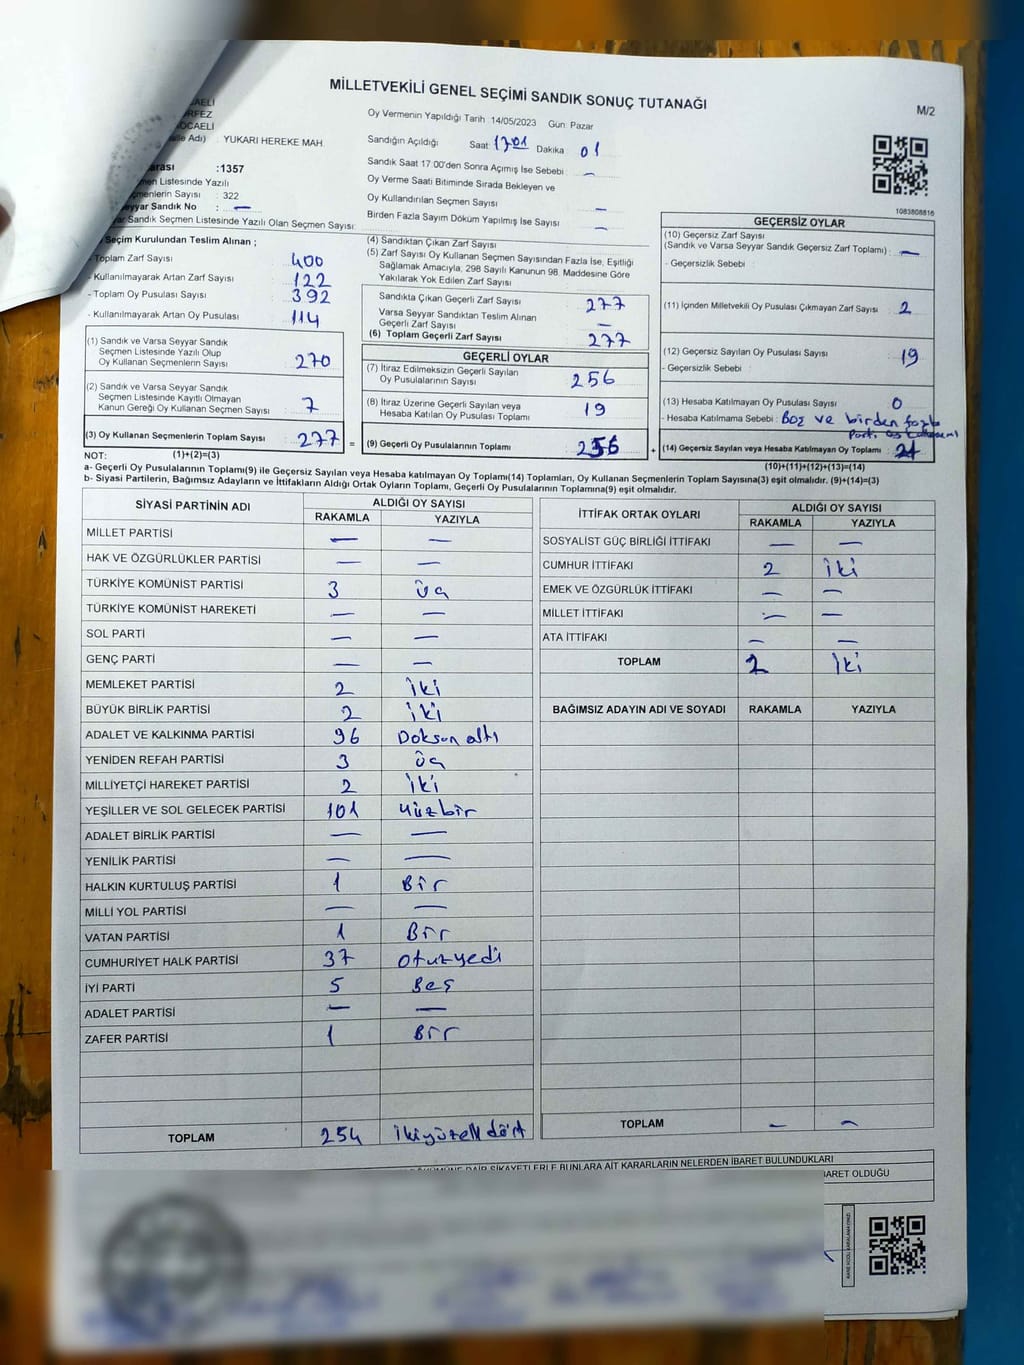 MİLLETVEKİLİ GENEL SEÇİMİ SANDIK SONUÇ TUTANAĞI
M/2
Oy Vermenin Yapıldığı Tarih 14/05/2023 Gün Pazar
YUKARI HEREKE MAH.
Sandığın Açıldığı Saat: 1701 Dakika 01
Sandık Saat 17:00'den Sonra Açımış İse Sebebi –
Oy Verme Saati Bitiminde Sırada Bekleyen ve
Oy Kullandırılan Seçmen Sayısı –
Birden Fazla Sayım Döküm Yapılmış İse Sayısı –
:1357
men Listesinde Yazılı
çmenlerin Sayısı : 322
eyyar Sandık No : –
ar Sandık Seçmen Listesinde Yazılı Olan Seçmen Sayısı:
1083808816
Seçim Kurulundan Teslim Alınan ;
Toplam Zarf Sayısı 400
- Kullanılmayarak Artan Zarf Sayısı 122
- Toplam Oy Pusulası Sayısı 392
- Kullanılmayarak Artan Oy Pusulası 114
(1) Sandık ve Varsa Seyyar Sandık
Seçmen Listesinde Yazılı Olup
Oy Kullanan Seçmenlerin Sayısı 270
(2) Sandık ve Varsa Seyyar Sandık
Seçmen Listesinde Kayıtlı Olmayan
Kanun Gereği Oy Kullanan Seçmen Sayısı : 7
(3) Oy Kullanan Seçmenlerin Toplam Sayısı 277 =
(4) Sandıktan Çıkan Zarf Sayısı
(5) Zarf Sayısı Oy Kullanan Seçmen Sayısından Fazla İse, Eşitliği
Sağlamak Amacıyla, 298 Sayılı Kanunun 98. Maddesine Göre
Yakılarak Yok Edilen Zarf Sayısı
Sandıkta Çıkan Geçerli Zarf Sayısı 277
Varsa Seyyar Sandıktan Teslim Alınan
Geçerli Zarf Sayısı –
(6) Toplam Geçerli Zarf Sayısı 277
GEÇERLİ OYLAR
(7) İtiraz Edilmeksizin Geçerli Sayılan
Oy Pusulalarının Sayısı 256
(8) İtiraz Üzerine Geçerli Sayılan veya
Hesaba Katılan Oy Pusulası Toplamı 19
(9) Geçerli Oy Pusulalarının Toplamı 256 +
GEÇERSİZ OYLAR
(10) Geçersiz Zarf Sayısı
(Sandık ve Varsa Seyyar Sandık Geçersiz Zarf Toplamı) : –
- Geçersizlik Sebebi
(11) İçinden Milletvekili Oy Pusulası Çıkmayan Zarf Sayısı 2
(12) Geçersiz Sayılan Oy Pusulası Sayısı 19
- Geçersizlik Sebebi :
(13) Hesaba Katılmayan Oy Pusulası Sayısı 0
- Hesaba Katılmama Sebebi : Boş ve birden fazla
(14) Geçersiz Sayılan veya Hesaba Katılmayan Oy Toplamı 21
NOT: (1)+(2)=(3)
(10)+(11)+(12)+(13)=(14)
a- Geçerli Oy Pusulalarının Toplamı(9) ile Geçersiz Sayılan veya Hesaba katılmayan Oy Toplamı(14) Toplamları, Oy Kullanan Seçmenlerin Toplam Sayısına(3) eşit olmalıdır. (9)+(14)=(3)
b- Siyasi Partilerin, Bağımsız Adayların ve İttifakların Aldığı Ortak Oyların Toplamı, Geçerli Oy Pusulalarının Toplamına(9) eşit olmalıdır.
SİYASİ PARTİNİN ADI ALDIĞI OY SAYISI
RAKAMLA YAZIYLA
MİLLET PARTİSİ – –
HAK VE ÖZGÜRLÜKLER PARTİSİ – –
TÜRKİYE KOMÜNİST PARTİSİ 3 üç
TÜRKİYE KOMÜNİST HAREKETİ – –
SOL PARTİ – –
GENÇ PARTİ – –
MEMLEKET PARTİSİ 2 iki
BÜYÜK BİRLİK PARTİSİ 2 iki
ADALET VE KALKINMA PARTİSİ 96 Doksan altı
YENİDEN REFAH PARTİSİ 3 üç
MİLLİYETÇİ HAREKET PARTİSİ 2 iki
YEŞİLLER VE SOL GELECEK PARTİSİ 101 Yüzbir
ADALET BİRLİK PARTİSİ – –
YENİLİK PARTİSİ – –
HALKIN KURTULUŞ PARTİSİ 1 Bir
MİLLİ YOL PARTİSİ – –
VATAN PARTİSİ 1 Bir
CUMHURİYET HALK PARTİSİ 37 otuzyedi
İYİ PARTİ 5 Beş
ADALET PARTİSİ – –
ZAFER PARTİSİ 1 Bir
TOPLAM 254 ikiyüzelli dört
İTTİFAK ORTAK OYLARI ALDIĞI OY SAYISI
RAKAMLA YAZIYLA
SOSYALİST GÜÇ BİRLİĞİ İTTİFAKI – –
CUMHUR İTTİFAKI 2 iki
EMEK VE ÖZGÜRLÜK İTTİFAKI – –
MİLLET İTTİFAKI – –
ATA İTTİFAKI – –
TOPLAM 2 iki
BAĞIMSIZ ADAYIN ADI VE SOYADI RAKAMLA YAZIYLA
TOPLAM – –
DÖKÜMÜNE DAİR ŞİKAYETLERLE BUNLARA AİT KARARLARIN NELERDEN İBARET BULUNDUKLARI
BARET OLDUĞU